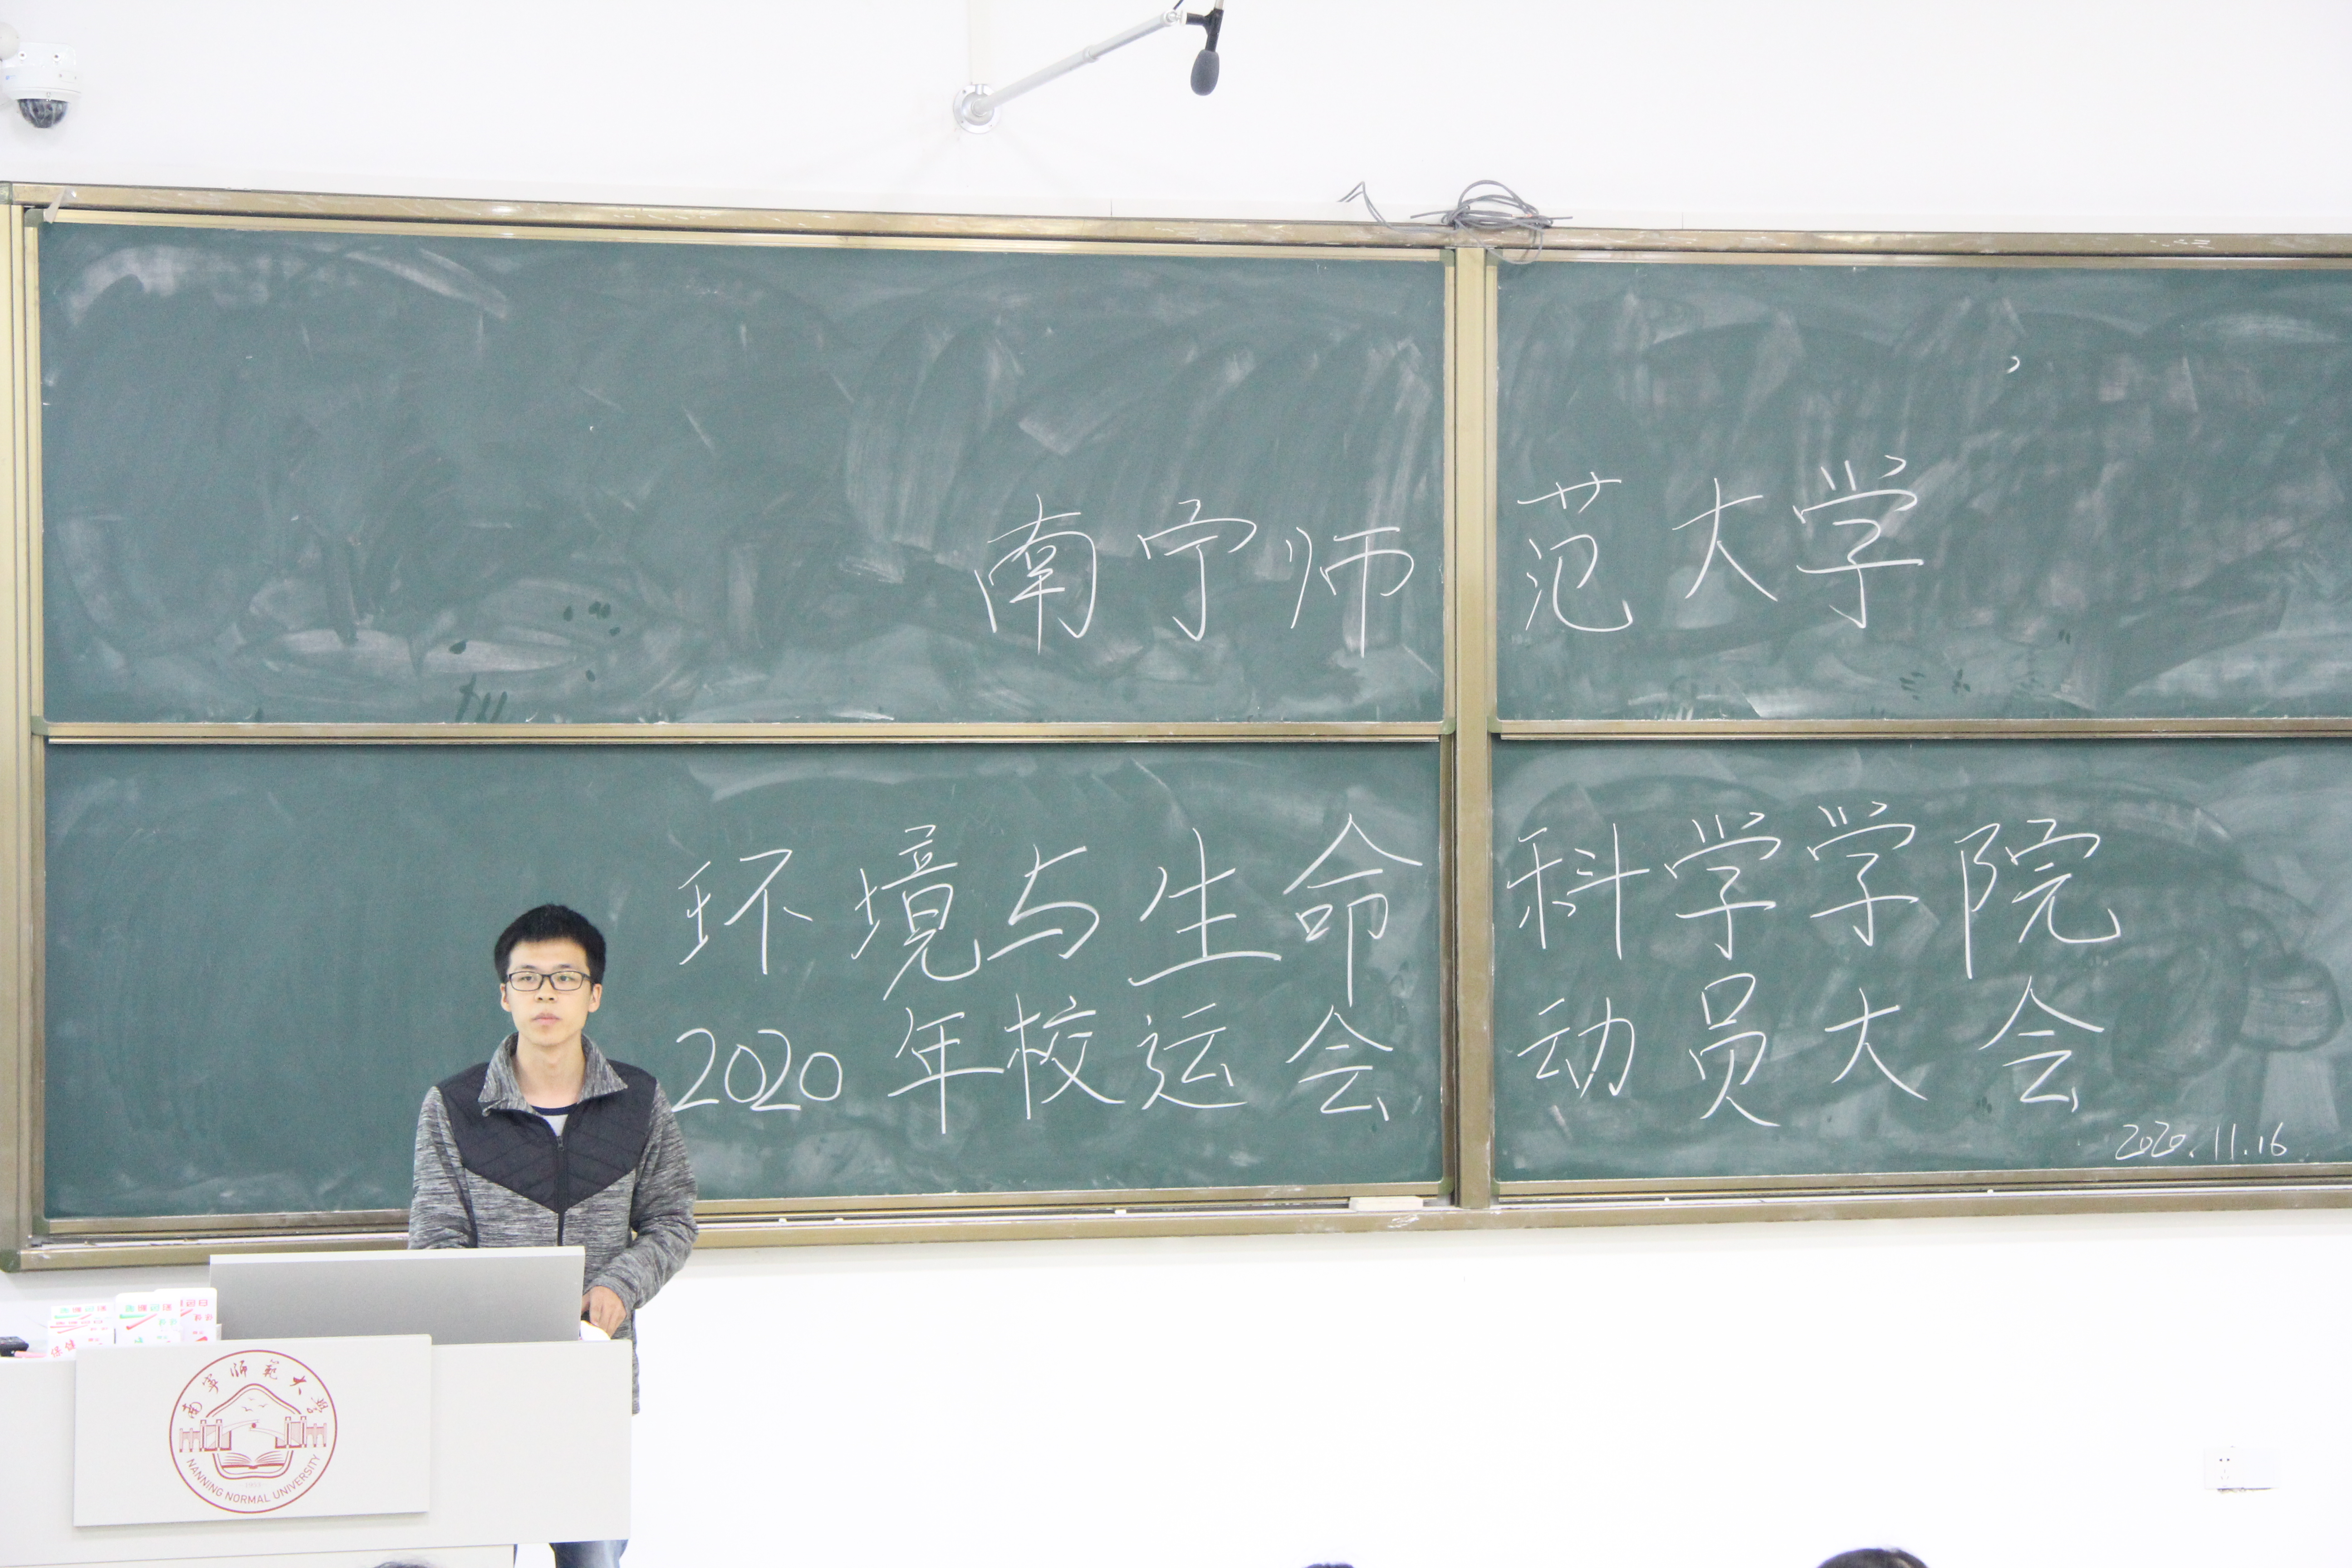 南宁师范大学
环境与生命科学学院
2020年校运会动员大会
2020.11.16
南寧师範大學
NANNING NORMAL UNIVERSITY